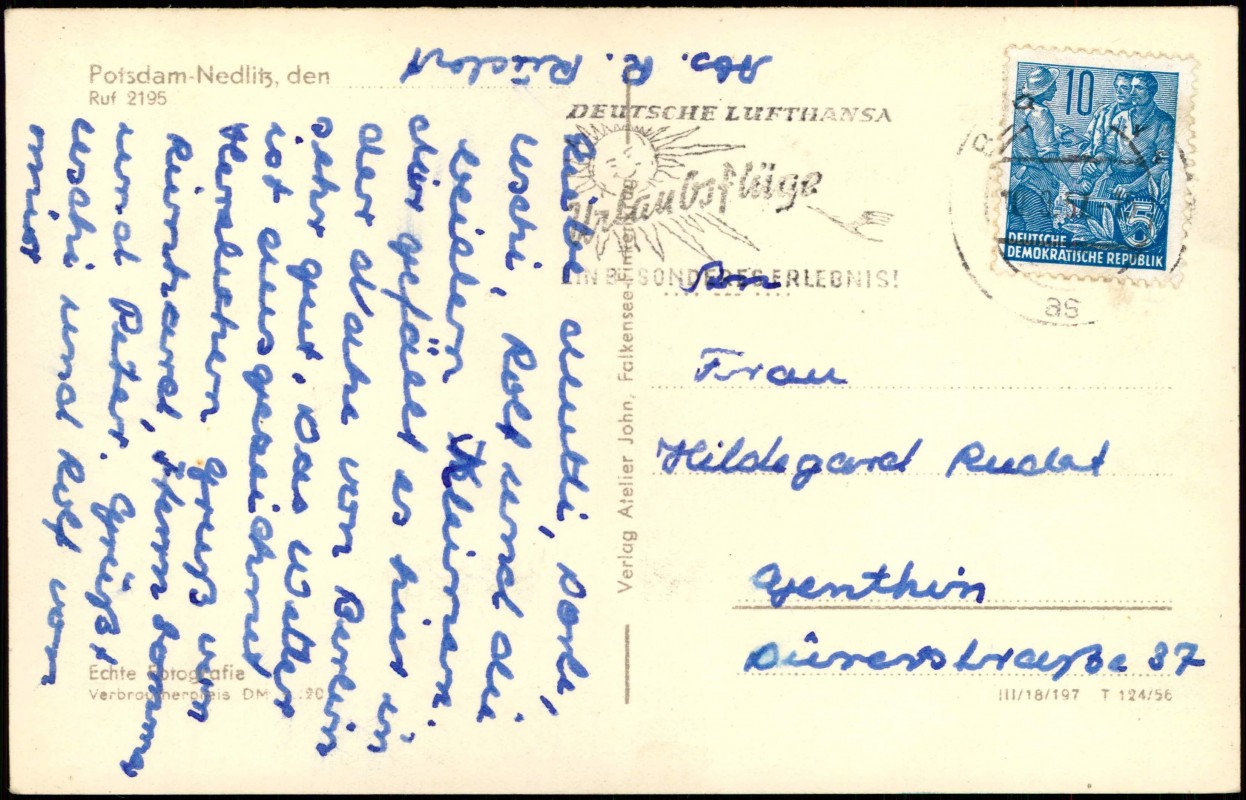 Potsdam-Nedlitz, den
Ruf 2195
Abs. R. Rudat
Liebe Mutti, Dorli,
Uschi, Rolf und die
beiden Kleinen.
Mir gefällt es hier in
der Nähe von Berlin
sehr gut. Das Wetter
ist ausgezeichnet
Herzlichen Gruß von
Reinhard,
und Peter. Grüßt
Uschi und Rolf von
mir
Echte Fotografie
Verbraucherpreis DM 0.20
Verlag Atelier John, Falkensee-Finkenkrug
DEUTSCHE LUFTHANSA
Urlaubsflüge
EIN BESONDERES ERLEBNIS!
10
DEUTSCHE
DEMOKRATISCHE REPUBLIK
5
as
Frau
Hildegard Rudat
Genthin
Dürerstraße 37
III/18/197 T 124/56